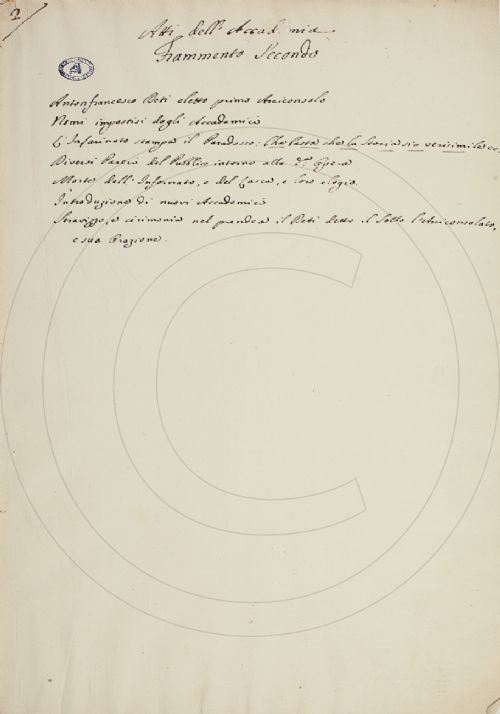 2
Atti dell'Accademia
Frammento Secondo
Antonfrancesco Beti eletto primo Arciconsolo
Nomi impostisi dagli Accademici
L'Infarinato stampa il Paradosso: Che lassa che la Storia sia verisimile ec.
Diversi Pareri del Pubblico intorno alla d.ª Opera
Morte dell'Informato, e del Lasca, e loro elogio.
Introduzione di nuovi Accademici
Stravizzo, e cirimonia nel prendea il Beti detto il Sollo l'Arciconsolato,
e sua Orazione.